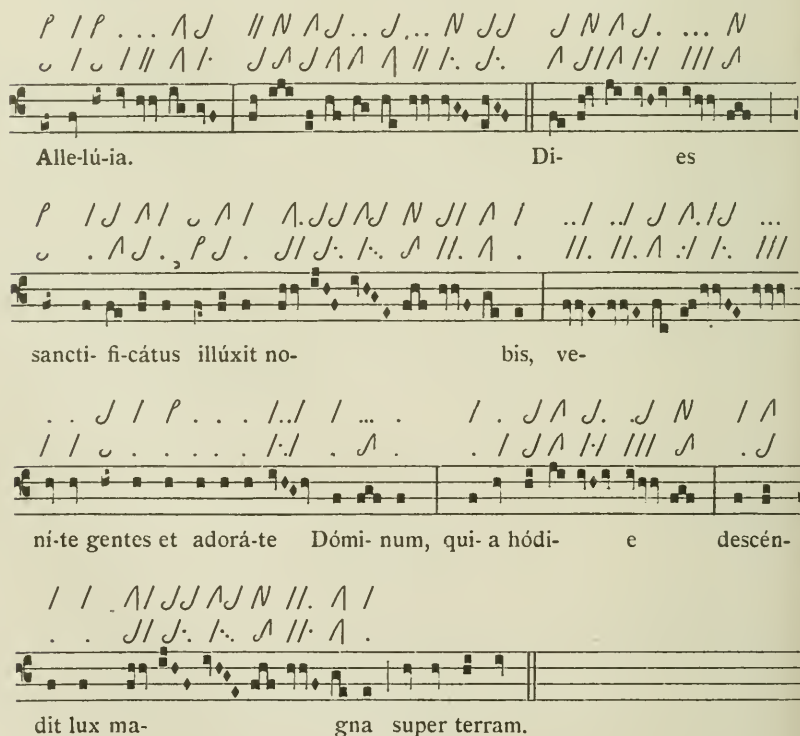 Alle-lú-ia. Di- es
sancti- fi-cátus illúxit no- bis, ve-
ní-te gentes et adorá-te Dómi- num, qui- a hódi- e descén-
dit lux ma- gna super terram.